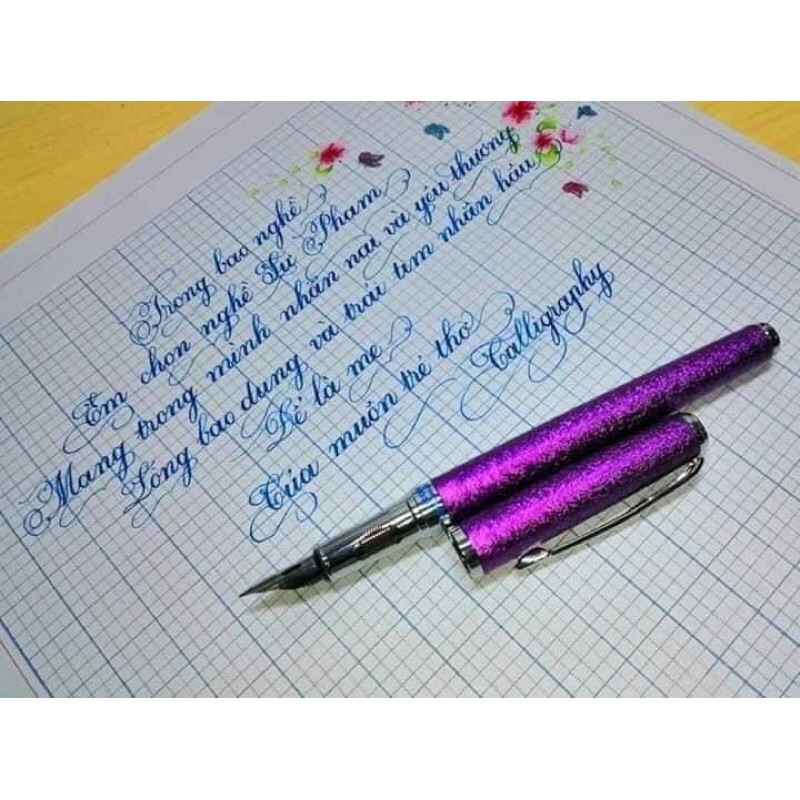 Trong bao nghề
Em chọn nghề Sư Phạm
Mang trong mình nhẫn nại và yêu thương
Lòng bao dung và trái tim nhân hậu
Để là mẹ
Của muôn trẻ thơ
Calligraphy